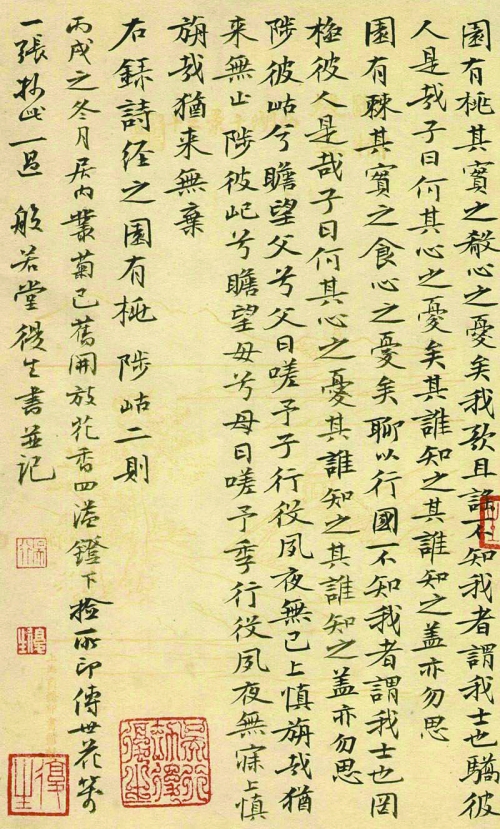 園有桃其實之殽心之憂矣我歌且謠不知我者謂我士也驕彼
人是哉子曰何其心之憂矣其誰知之其誰知之蓋亦勿思
園有棘其實之食心之憂矣聊以行國不知我者謂我士也罔
極彼人是哉子曰何其心之憂其誰知之其誰知之蓋亦勿思
陟彼岵兮瞻望父兮父曰嗟予子行役夙夜無已上慎旃哉猶
来無止陟彼屺兮瞻望母兮母曰嗟予季行役夙夜無寐上慎
旃哉猶来無棄
右錄詩经之園有桃陟岵二則
丙戌之冬月居内叢菊已舊開放花香四溢鐙下撿所印傳世花箋
一張抄此一過 般若堂復生書並記
復生